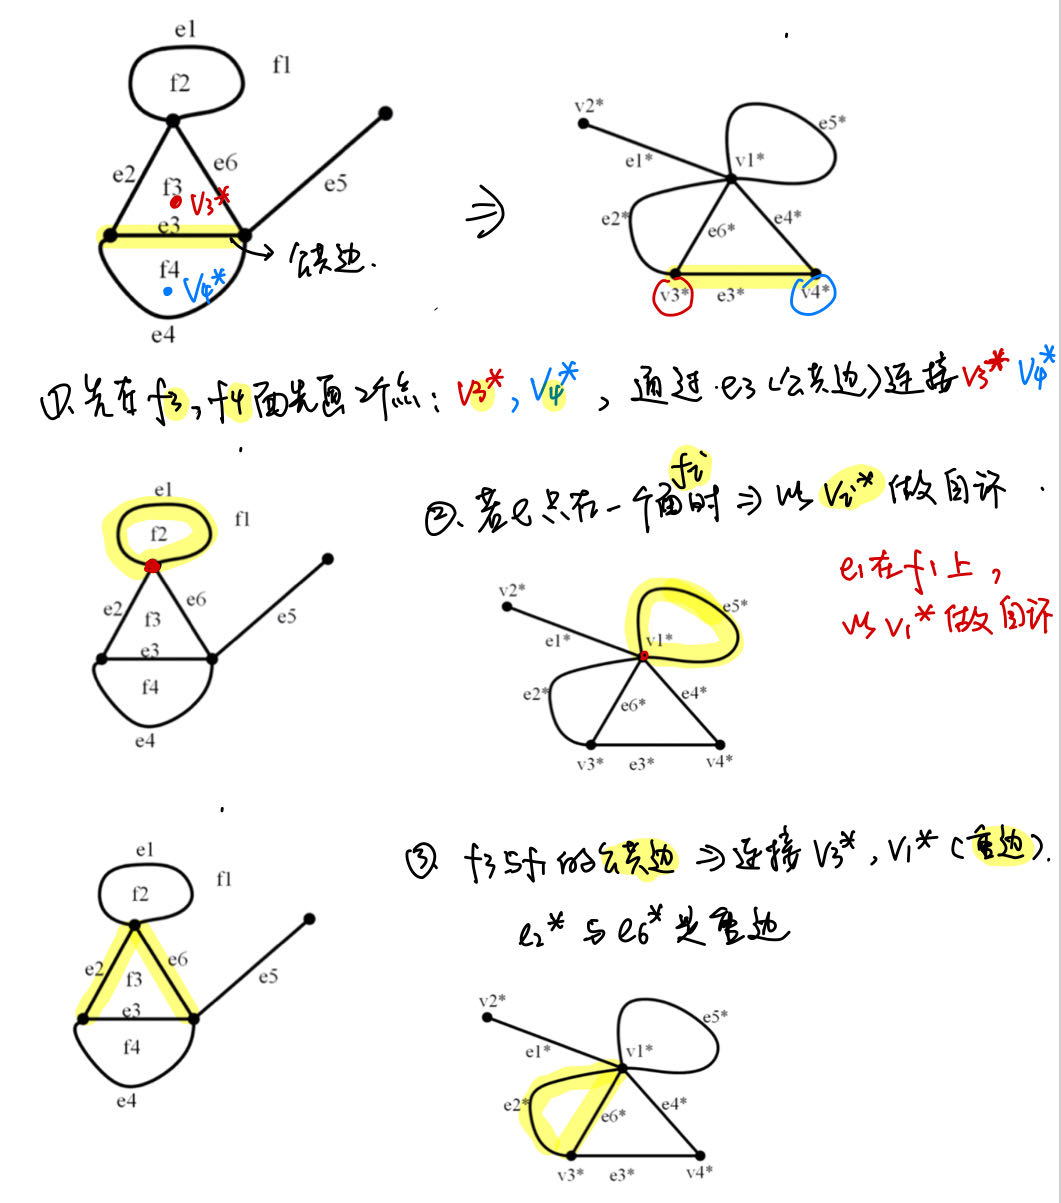 e1
f1
f2
e2
e6
f3
V3*
e3
e5
公共边.
f4
V4*
e4
⇒
v2*
e5*
e1*
v1*
e2*
e6*
e4*
v3*
e3*
v4*
①.先在f3,f4面先画2个点: V3*, V4*, 通过e3(公共边)连接V3* V4*
e1
f1
f2
e2
e6
f3
e3
e5
f4
e4
②.若e只在一个面fi时⇒以Vi*做自环.
e1在f1上,
以V1*做自环
v2*
e5*
e1*
v1*
e2*
e6*
e4*
v3*
e3*
v4*
e1
f1
f2
e2
e6
f3
e3
e5
f4
e4
③. f3与f1的公共边⇒连接V3*,V1*(重边).
e2*与e6*是重边
v2*
e5*
e1*
v1*
e2*
e6*
e4*
v3*
e3*
v4*